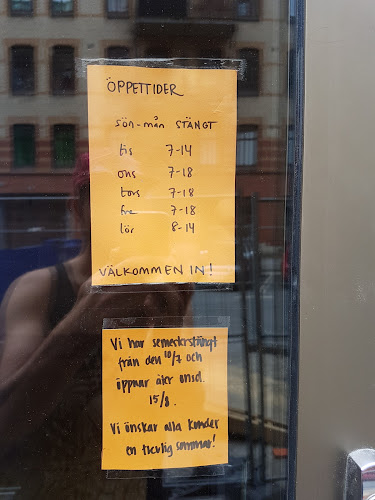 ÖPPETTIDER
sön-mån STÄNGT
tis 7-14
ons 7-18
tors 7-18
fre 7-18
lör 8-14
VÄLKOMMEN IN!
Vi har semesterstängt
från den 10/7 och
öppnar åter onsd.
15/8.
Vi önskar alla kunder
en trevlig sommar!